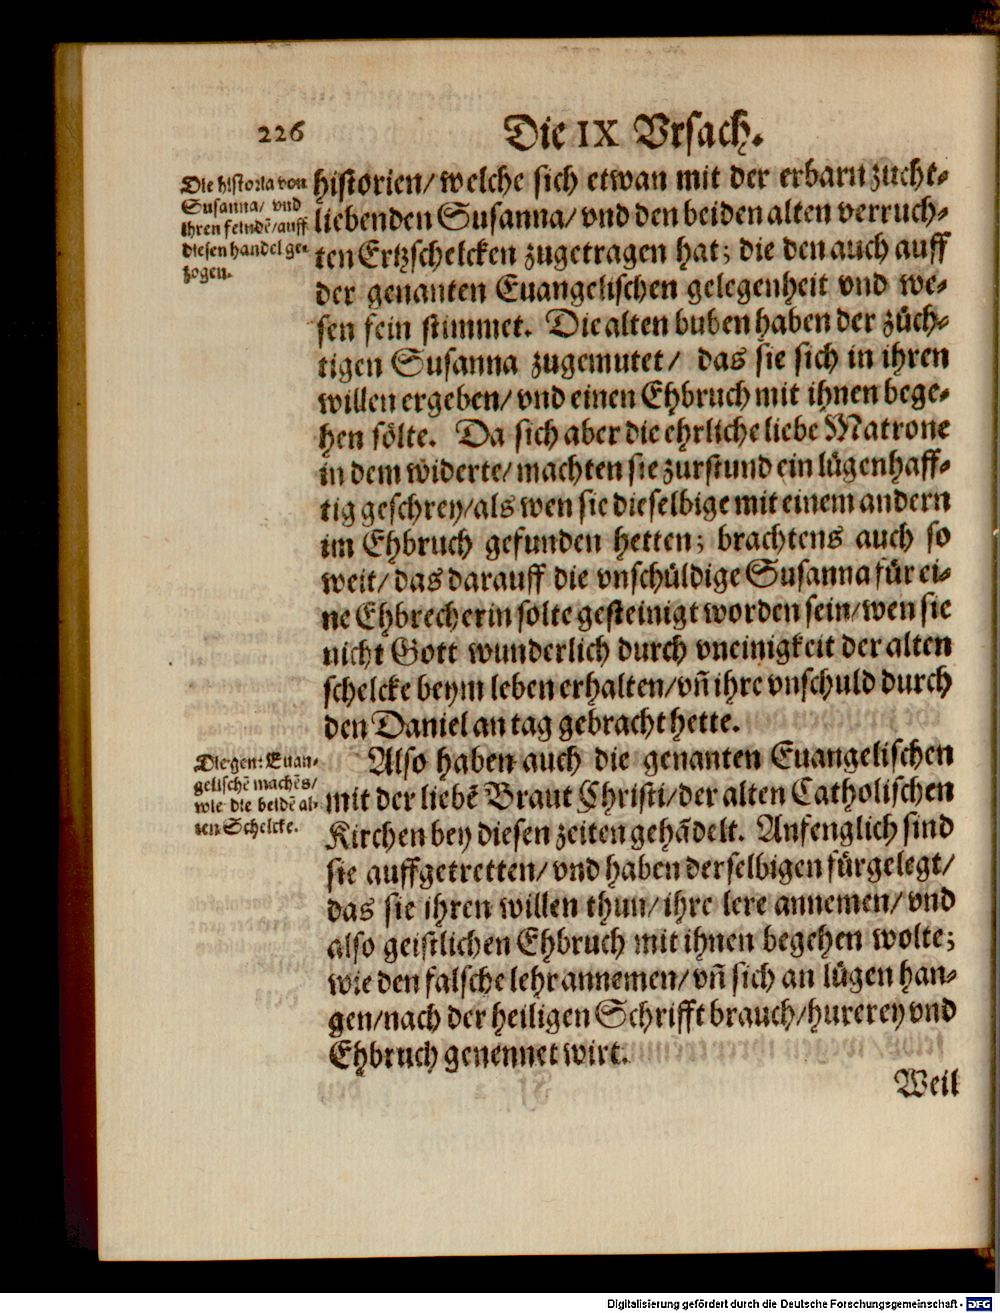 226
Die IX Vrsach.
Die historia von
Susanna/ vnd
ihren feindẽ/auff
diesen handel ge-
zogen.
historien/welche sich etwan mit der erbarn zucht-
liebenden Susanna/vnd den beiden alten verruch-
ten Ertzschelcken zugetragen hat; die den auch auff
der genanten Euangelischen gelegenheit vnd we-
sen fein stimmet. Die alten buben haben der züch-
tigen Susanna zugemutet/ das sie sich in ihren
willen ergeben/vnd einen Ehbruch mit ihnen bege-
hen sölte. Da sich aber die ehrliche liebe Matrone
in dem widerte/machten sie zurstund ein lügenhaff-
tig geschrey/als wen sie dieselbige mit einem andern
im Ehbruch gefunden hetten; brachtens auch so
weit/das darauff die vnschüldige Susanna für ei-
ne Ehbrecherin solte gesteinigt worden sein/wen sie
nicht Gott wunderlich durch vneinigkeit der alten
schelcke beym leben erhalten/vñ ihre vnschuld durch
den Daniel an tag gebracht hette.
Die gen: Euan-
gelischẽ machẽs/
wie die beidẽ al-
ten Schelcke.
Also haben auch die genanten Euangelischen
mit der liebẽ Braut Christi/der alten Catholischen
Kirchen bey diesen zeiten gehãdelt. Anfenglich sind
sie auffgetretten/vnd haben derselbigen fürgelegt/
das sie ihren willen thun/ihre lere annemen/vnd
also geistlichen Ehbruch mit ihnen begehen wolte;
wie den falsche lehr annemen/vñ sich an lügen han-
gen/nach der heiligen Schrifft brauch/hurerey vnd
Ehbruch genennet wirt.
Weil
Digitalisierung gefördert durch die Deutsche Forschungsgemeinschaft - DFG